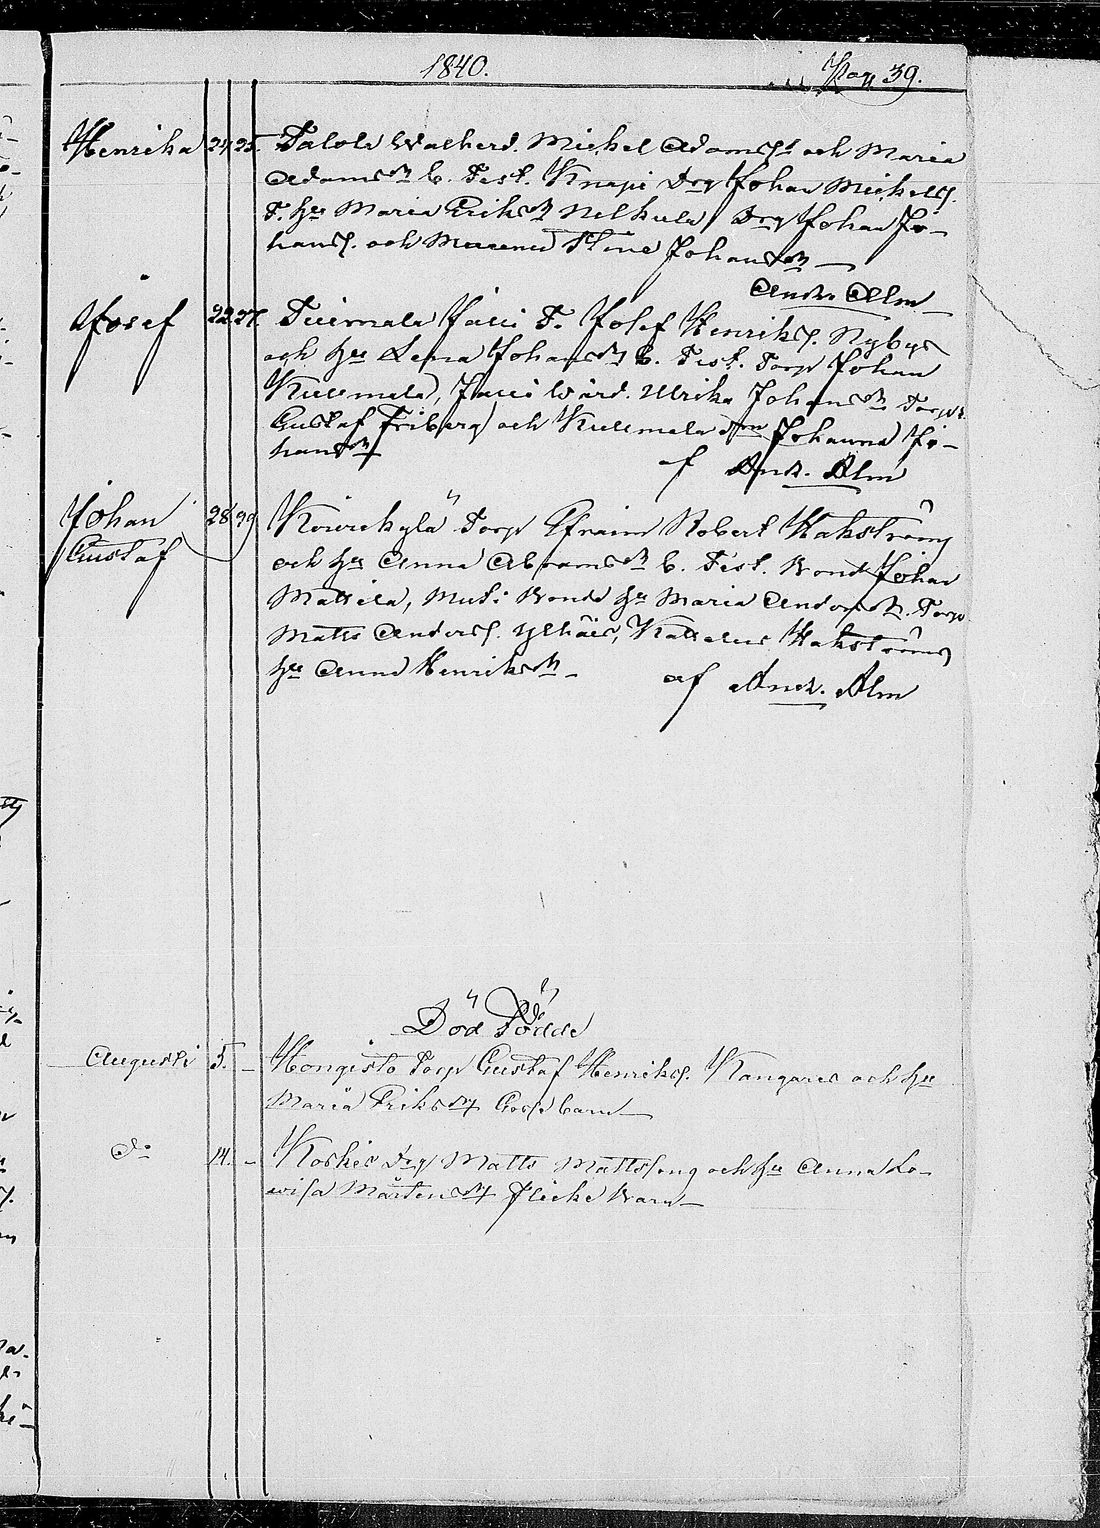 1840.
Pag 39.
Henrika 24 25. Talola Walherd. Michel Adamss. och Maria
Adamsdr b. Test. Knapi Drg Johan Michelss.
T. Hu Maria Eriksdr Nelkula, Drg Johan Jo-
hanss. och Stina Johansdr —
Andr. Alm
Josef 22 27. Tuimala Jaui T. Josef Henrikss. Nyby
och Hu Lena Johansdr b. Test. Torp Johan
Kuumala, Jaui Wärd. Ulrika Johansdr Torp
Gustaf Friberg och Kuumala Johanna Jo-
hansdr
af Andr. Alm
Johan 28 29 Kouvikylä Torp Efraim Robert Hakström
Gustaf och Hu Anna Abramsdr b. Test. Bond Johan
Mattila, Bonde Hu Maria Andersdr. Torp
Matts Anderss. Hakström
Hu Anna Henriksdr —
af Andr. Alm
Död Födde
Augusti 5. — Hongisto Torp Gustaf Henrikss. Kangares och Hu
Maria Eriksdr Gosse barn —
Do 14. — Koskis Drg Matts Mattsson och Hu Anna Lo-
visa Mårtensdr Flicke Barn —